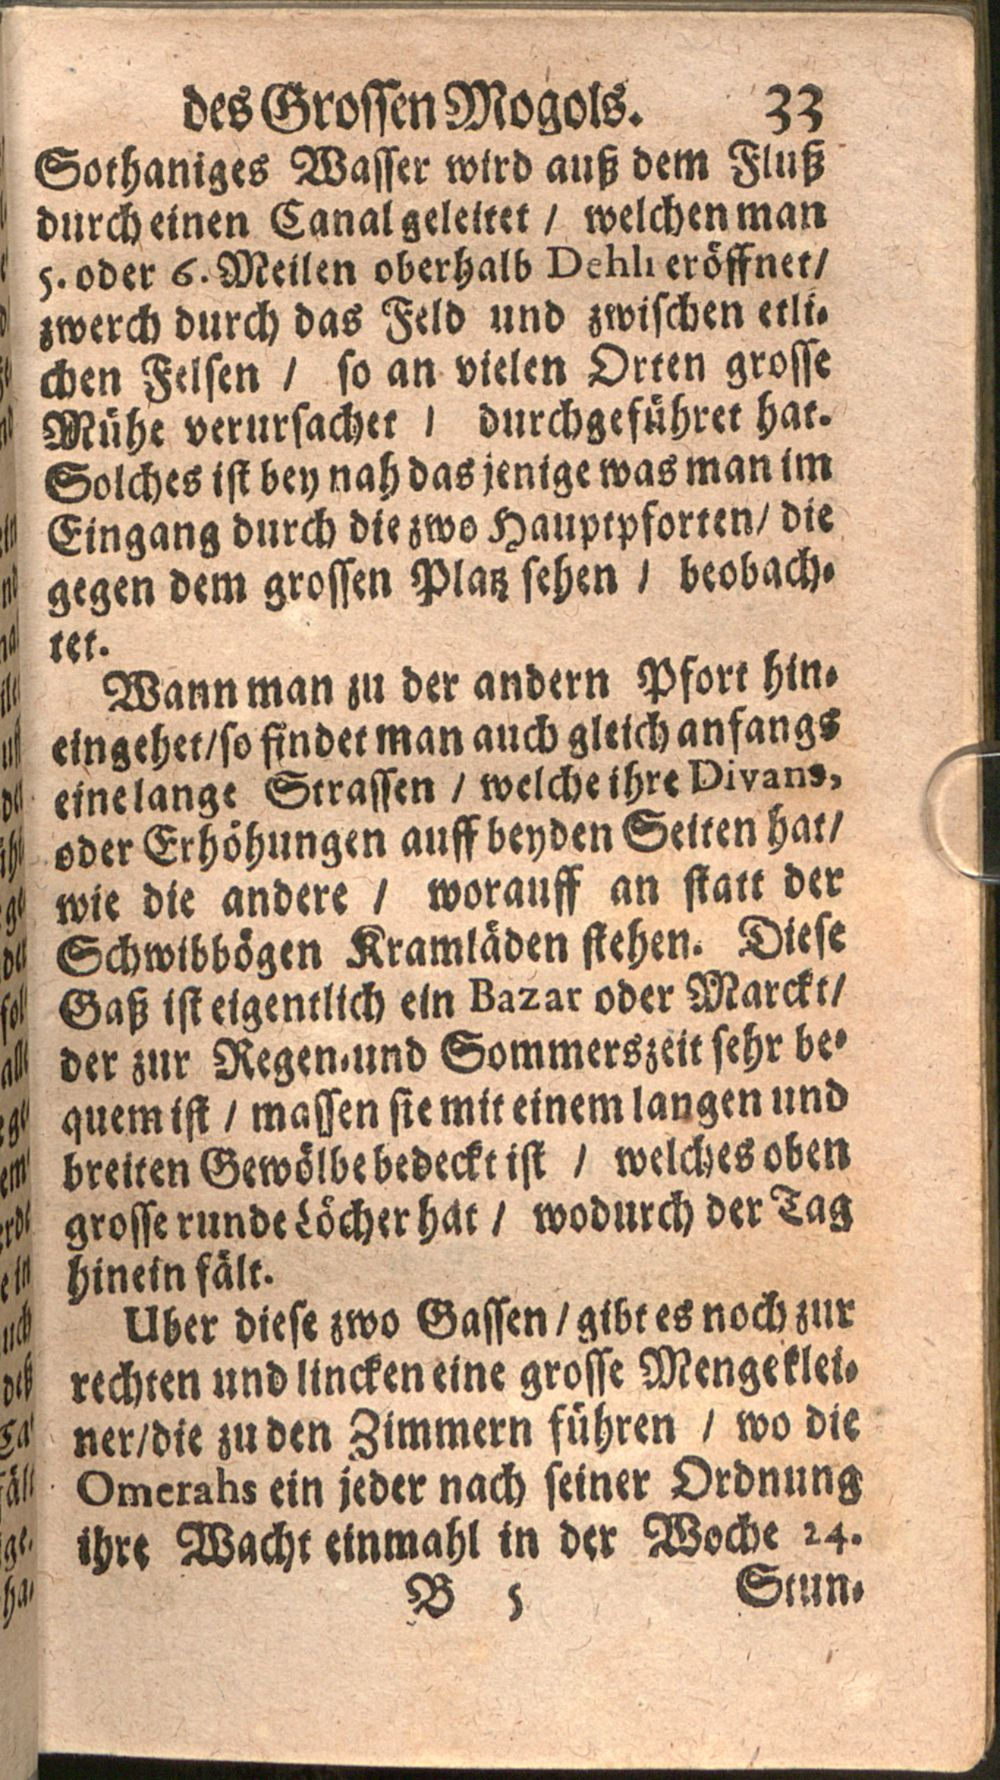 des Grossen Mogols. 33
Sothaniges Wasser wird auß dem Fluß
durch einen Canal geleitet / welchen man
5. oder 6. Meilen oberhalb Dehli eröffnet /
zwerch durch das Feld und zwischen etli-
chen Felsen / so an vielen Orten grosse
Mühe verursachet / durchgeführet hat.
Solches ist bey nah das jenige was man im
Eingang durch die zwo Hauptpforten / die
gegen dem grossen Platz sehen / beobach-
tet.
Wann man zu der andern Pfort hin-
eingehet / so findet man auch gleich anfangs
eine lange Strassen / welche ihre Divans,
oder Erhöhungen auff beyden Seiten hat /
wie die andere / worauff an statt der
Schwibbögen Kramläden stehen. Diese
Gaß ist eigentlich ein Bazar oder Marckt /
der zur Regen- und Sommerszeit sehr be-
quem ist / massen sie mit einem langen und
breiten Gewölbe bedeckt ist / welches oben
grosse runde Löcher hat / wodurch der Tag
hinein fält.
Uber diese zwo Gassen / gibt es noch zur
rechten und lincken eine grosse Menge klei-
ner / die zu den Zimmern führen / wo die
Omerahs ein jeder nach seiner Ordnung
ihre Wacht einmahl in der Woche 24.
B 5 Stun-